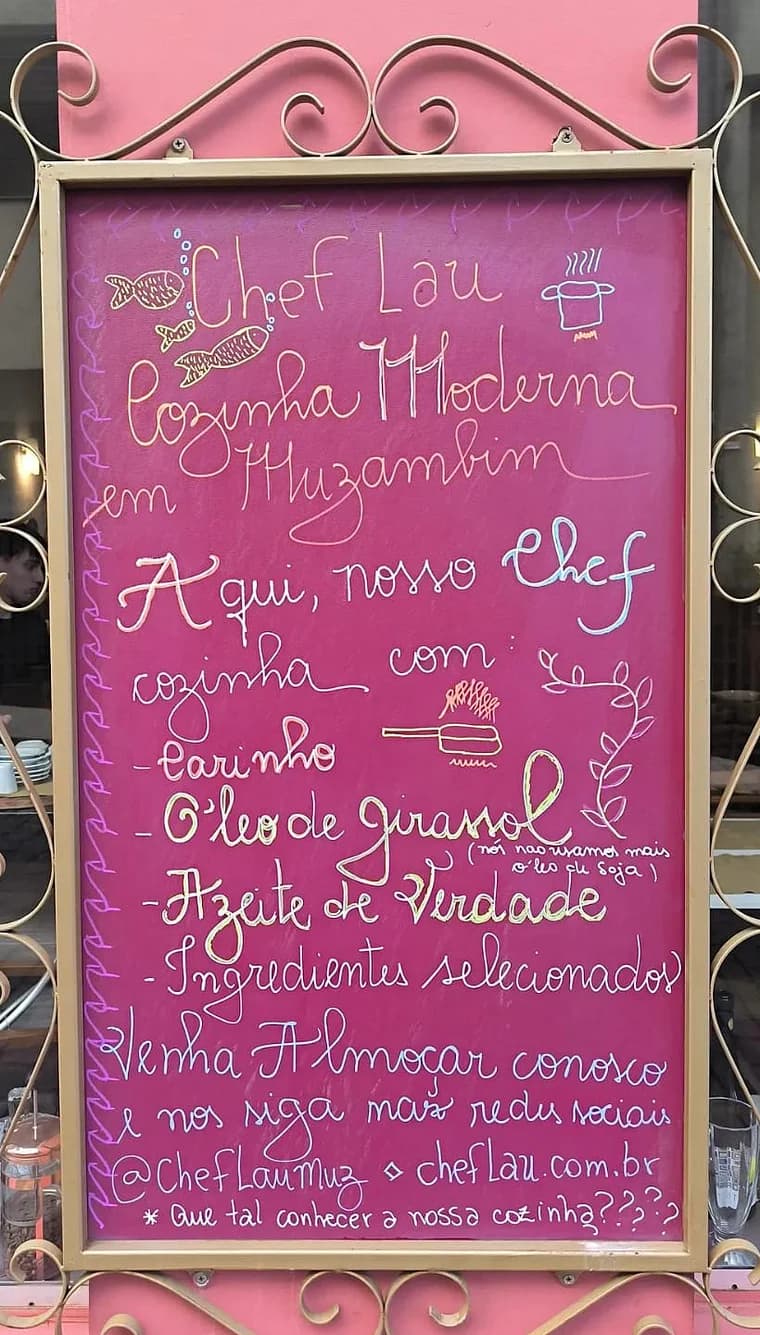 Chef Lau
Cozinha Moderna
em Muzambim
Aqui, nosso Chef
cozinha com:
- Carinho
- Óleo de girassol
(nós nao usamos mais
óleo de Soja)
- Azeite de Verdade
- Ingredientes selecionados
Venha Almoçar conosco
e nos siga nas redes sociais
@CheFLaumuz ◇ chefLau.com.br
* Que tal conhecer a nossa cozinha????